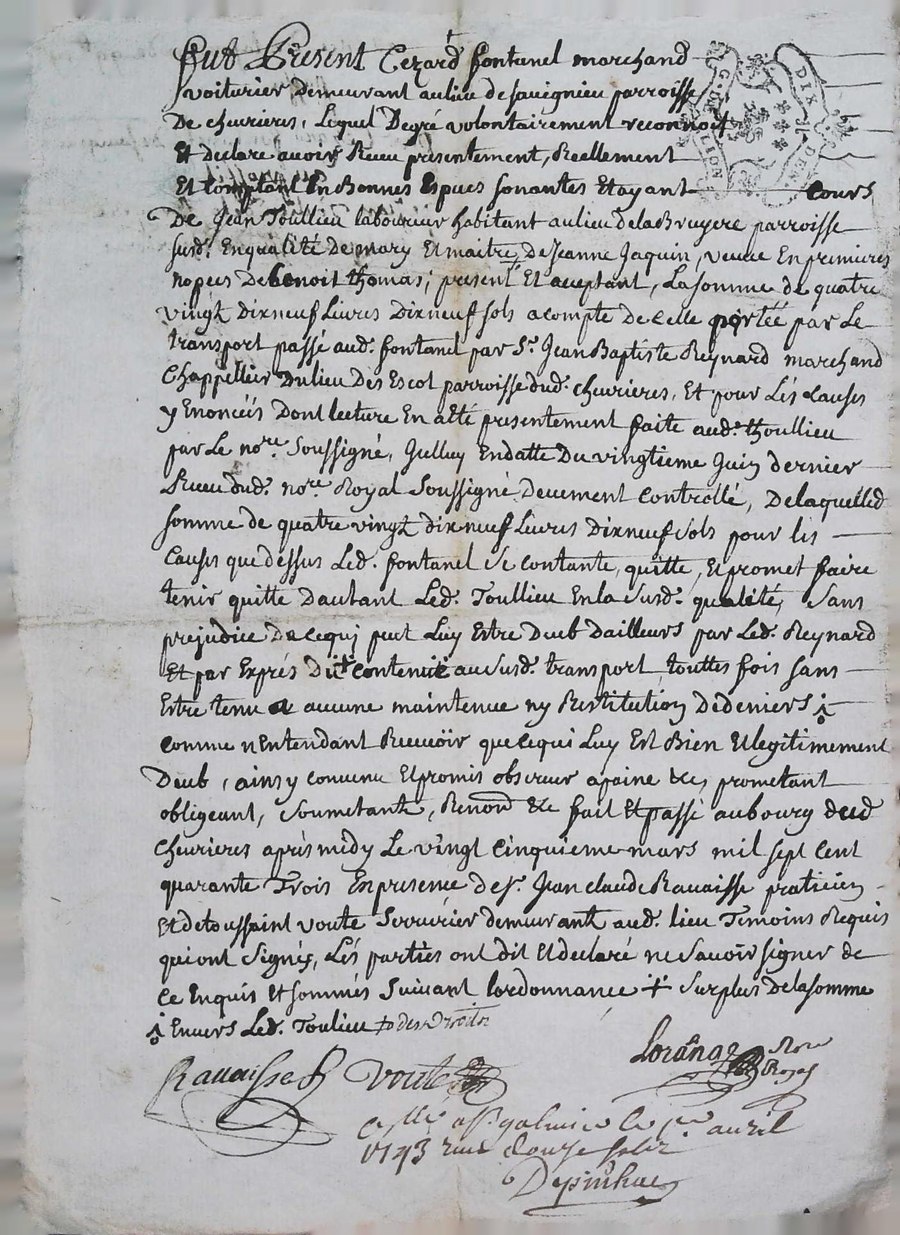 fut Present Cezard fontanel marchand
voiturier demeurant au lieu de Sauignieu parroisse
De cheurieres, Lequel Degré volontairement reconnoit
Et declare auoir Receu presentement, Reellement
Et Comptant En Bonnes Especes sonantes Et ayant cours
De Jean Toullieu laboureur habitant au lieu dela Bruyere parroisse
susd. En qualité de mary Et maitre De Jeanne Jaquin, veuue En premieres
nopces De Benoit thomas; present Et aceptant, La somme de quatre
vingt Dixneuf Liures Dixneuf sols acompte De celle portée par Le
transport passé aud. fontanel par Sr. Jean Baptiste Reynard marchand
Chappellier Du lieu Des Escot parroisse dud. cheurieres, Et pour Lés Causes
y Enoncéés Dont lecture En a été presentement faite aud. thoullieu
par Le nore. Soussigné, Jcelluy En datte Du vingtieme Juin dernier
Receu dud. nore. Royal Soussigné Deuement Controllé, De laquelled
somme de quatre vingt dixneuf Liures Dixneuf sols pour les
Causes que dessus Led. fontanel se contante, quitte, Et promet faire
tenir quitte Dautant Led. Toullieu En la Susd. qualité, Sans
prejudice De cequi peut Luy Estre Deub Dailleurs par Led. Reynard
Et par Exprés Du + contenu au susd. transport, touttes fois sans
Estre tenu a aucune maintenue ny Restitution De deniers
comme n'Entendant Receuoir que cequi Luy Est Bien Et legitimement
Deub, ainsy convenu Et promis obseruer apaine &c, prometant
obligeant, Soumetant, Renonc &c fait Et passé au bourg dud
Cheurieres aprés midy Le vingt Cinquieme mars mil sept Cent
quarante Trois En presence de Sr. Jean claude Rauaisse praticien
Et de toussaint voute Serrurier demeurant aud. lieu Temoins Requis
qui ont Signés, Lés parties ont dit Et declaré ne Sauoir signer de
Ce Enquis Et sommés Suiuant lordonnance + Surplus dela somme
Enuers Led. Toulieu des Droits
Rauaisse voute Lorange Nore Royal
Cllé a St galmier le 1er auril
1743 receu douze sols